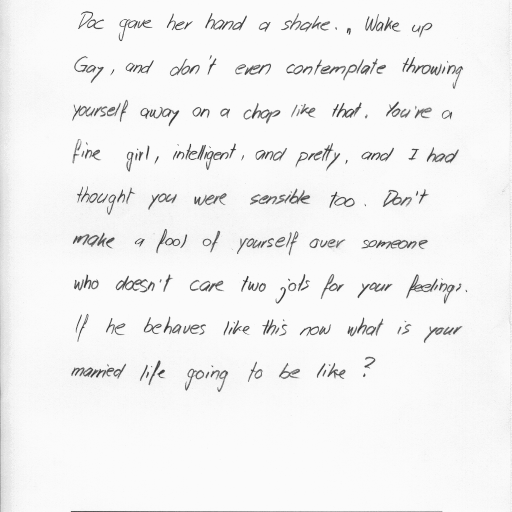 Doc gave her hand a shake. „ Wake up
Gay, and don't even contemplate throwing
yourself away on a chap like that. You're a
fine girl, intelligent, and pretty, and I had
thought you were sensible too. Don't
make a fool of yourself over someone
who doesn't care two jots for your feelings.
If he behaves like this now what is your
married life going to be like?